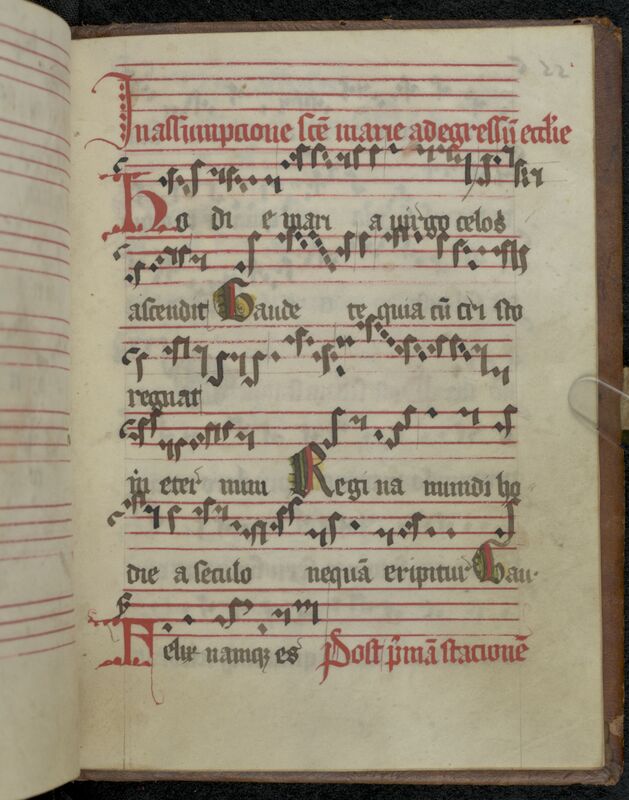 22
In assumpcione scē marie ad egressū eccl'ie
Ho di e mari a virgo celos
ascendit Gaude te quia cū cri sto
regnat
in eter num Regi na mundi ho
die a seculo nequā eripitur Gau-
Felix namqz es Post pͥmā stacionē